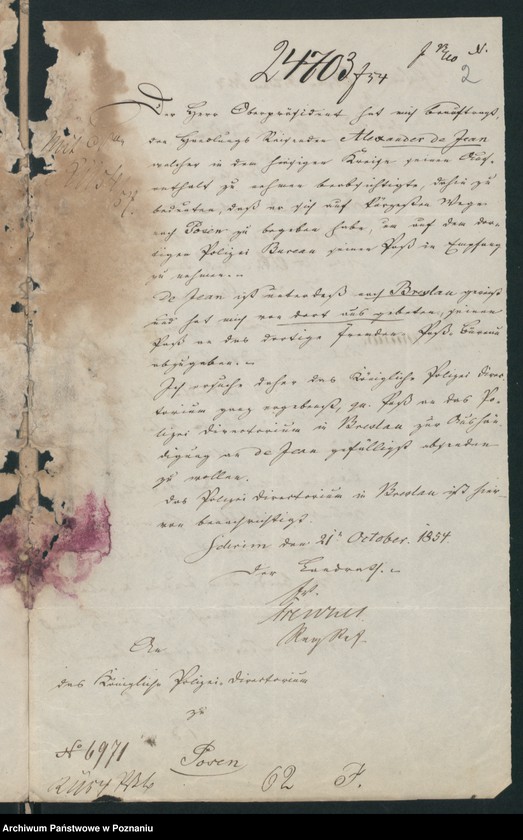 24703/54
2
Der Herr Oberpräsident hat mich beauftragt,
den Handlungs Reisenden Alexander de Jean
welcher in dem hiesigen Kreise seinen Auf-
enthalt zu nehmen beabsichtigte, dahin zu
bedeuten, daß er sich auf kürzestem Wege
nach Posen zu begeben habe, um auf dem dor-
tigen Polizei Bureau seinen Paß in Empfang
zu nehmen.
de Jean ist unterdeß nach Breslau gereist
und hat mich von dort aus gebeten, seinen
Paß an das dortige Fremden-Paß-Bureau
abzugeben.
Ich ersuche daher das Königliche Polizei Direc-
torium ganz ergebenst, qu. Paß an das Po-
lizei Directorium in Breslau zur Aushän-
digung an de Jean gefälligst absenden
zu wollen.
Das Polizei Directorium in Breslau ist hier-
von benachrichtigt.
Schrim den 21t October 1854
Der Landrath.
An
das Königliche Polizei-Directorium
zu
Posen
No 6971
62 F.
Archiwum Państwowe w Poznaniu